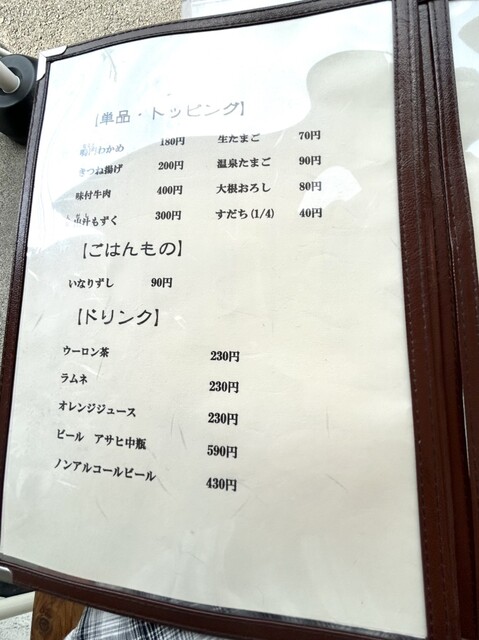 【単品・トッピング】
鳴門わかめ 180円 生たまご 70円
きつね揚げ 200円 温泉たまご 90円
味付牛肉 400円 大根おろし 80円
もずく 300円 すだち(1/4) 40円
【ごはんもの】
いなりずし 90円
【ドリンク】
ウーロン茶 230円
ラムネ 230円
オレンジジュース 230円
ビール アサヒ中瓶 590円
ノンアルコールビール 430円